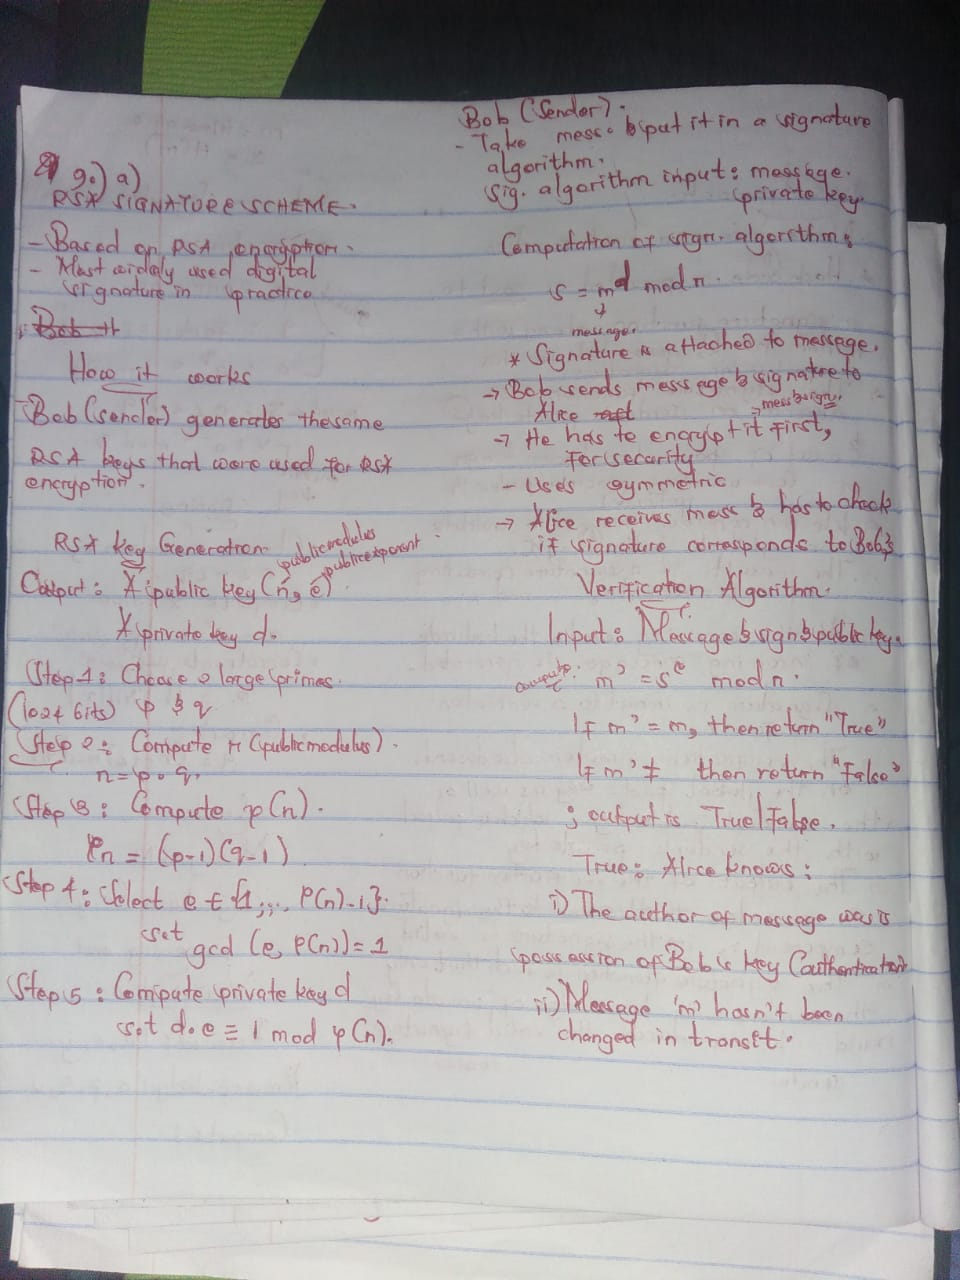 9.) a)
RSA SIGNATURE SCHEME.
- Based on RSA encryption.
- Most widely used digital
signature in practice
Bob th
How it works
- Bob (sender) generates the same
RSA keys that were used for RSA
encryption.
RSA key Generation
public modulus
public exponent
Output: * public key (n, e).
* private key d.
Step 1: Choose 2 large primes.
(1024 bits) p & q
Step 2: Compute n (public modulus).
n = p . q.
Step 3: Compute φ(n).
φn = (p-1)(q-1)
Step 4: Select e ∈ {1,,,.. φ(n)-1}.
set gcd (e, φ(n)) = 1
Step 5: Compute private key d
set d.e ≡ 1 mod φ(n).
Bob (Sender).
- Take mess. & put it in a signature
algorithm.
Sig. algorithm input: message.
private key
Computation of sign. algorithm:
s = m^d mod n.
message.
* Signature is attached to message.
→ Bob sends message & signature to
Alice
→ mess & sign.
→ He has to encrypt it first,
for security
- Uses symmetric
→ Alice receives mess & has to check
if signature corresponds to Bob's
Verification Algorithm.
Input: Message & sign & public key.
compute: m' = s^e mod n.
If m' = m, then return "True"
If m' ≠ then return "False"
; output is True/False.
True: Alice knows:
i) The author of message was is
possession of Bob's key (authentication
ii) Message 'm' hasn't been
changed in transit.